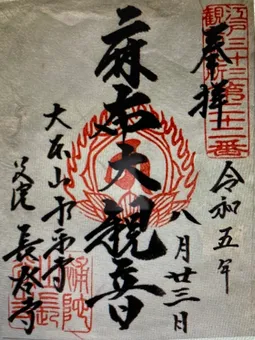 江戸三十三第二十二番
奉拝
令和五年
八月廿三日
麻布大観音
大本山永平寺
別院
長谷寺